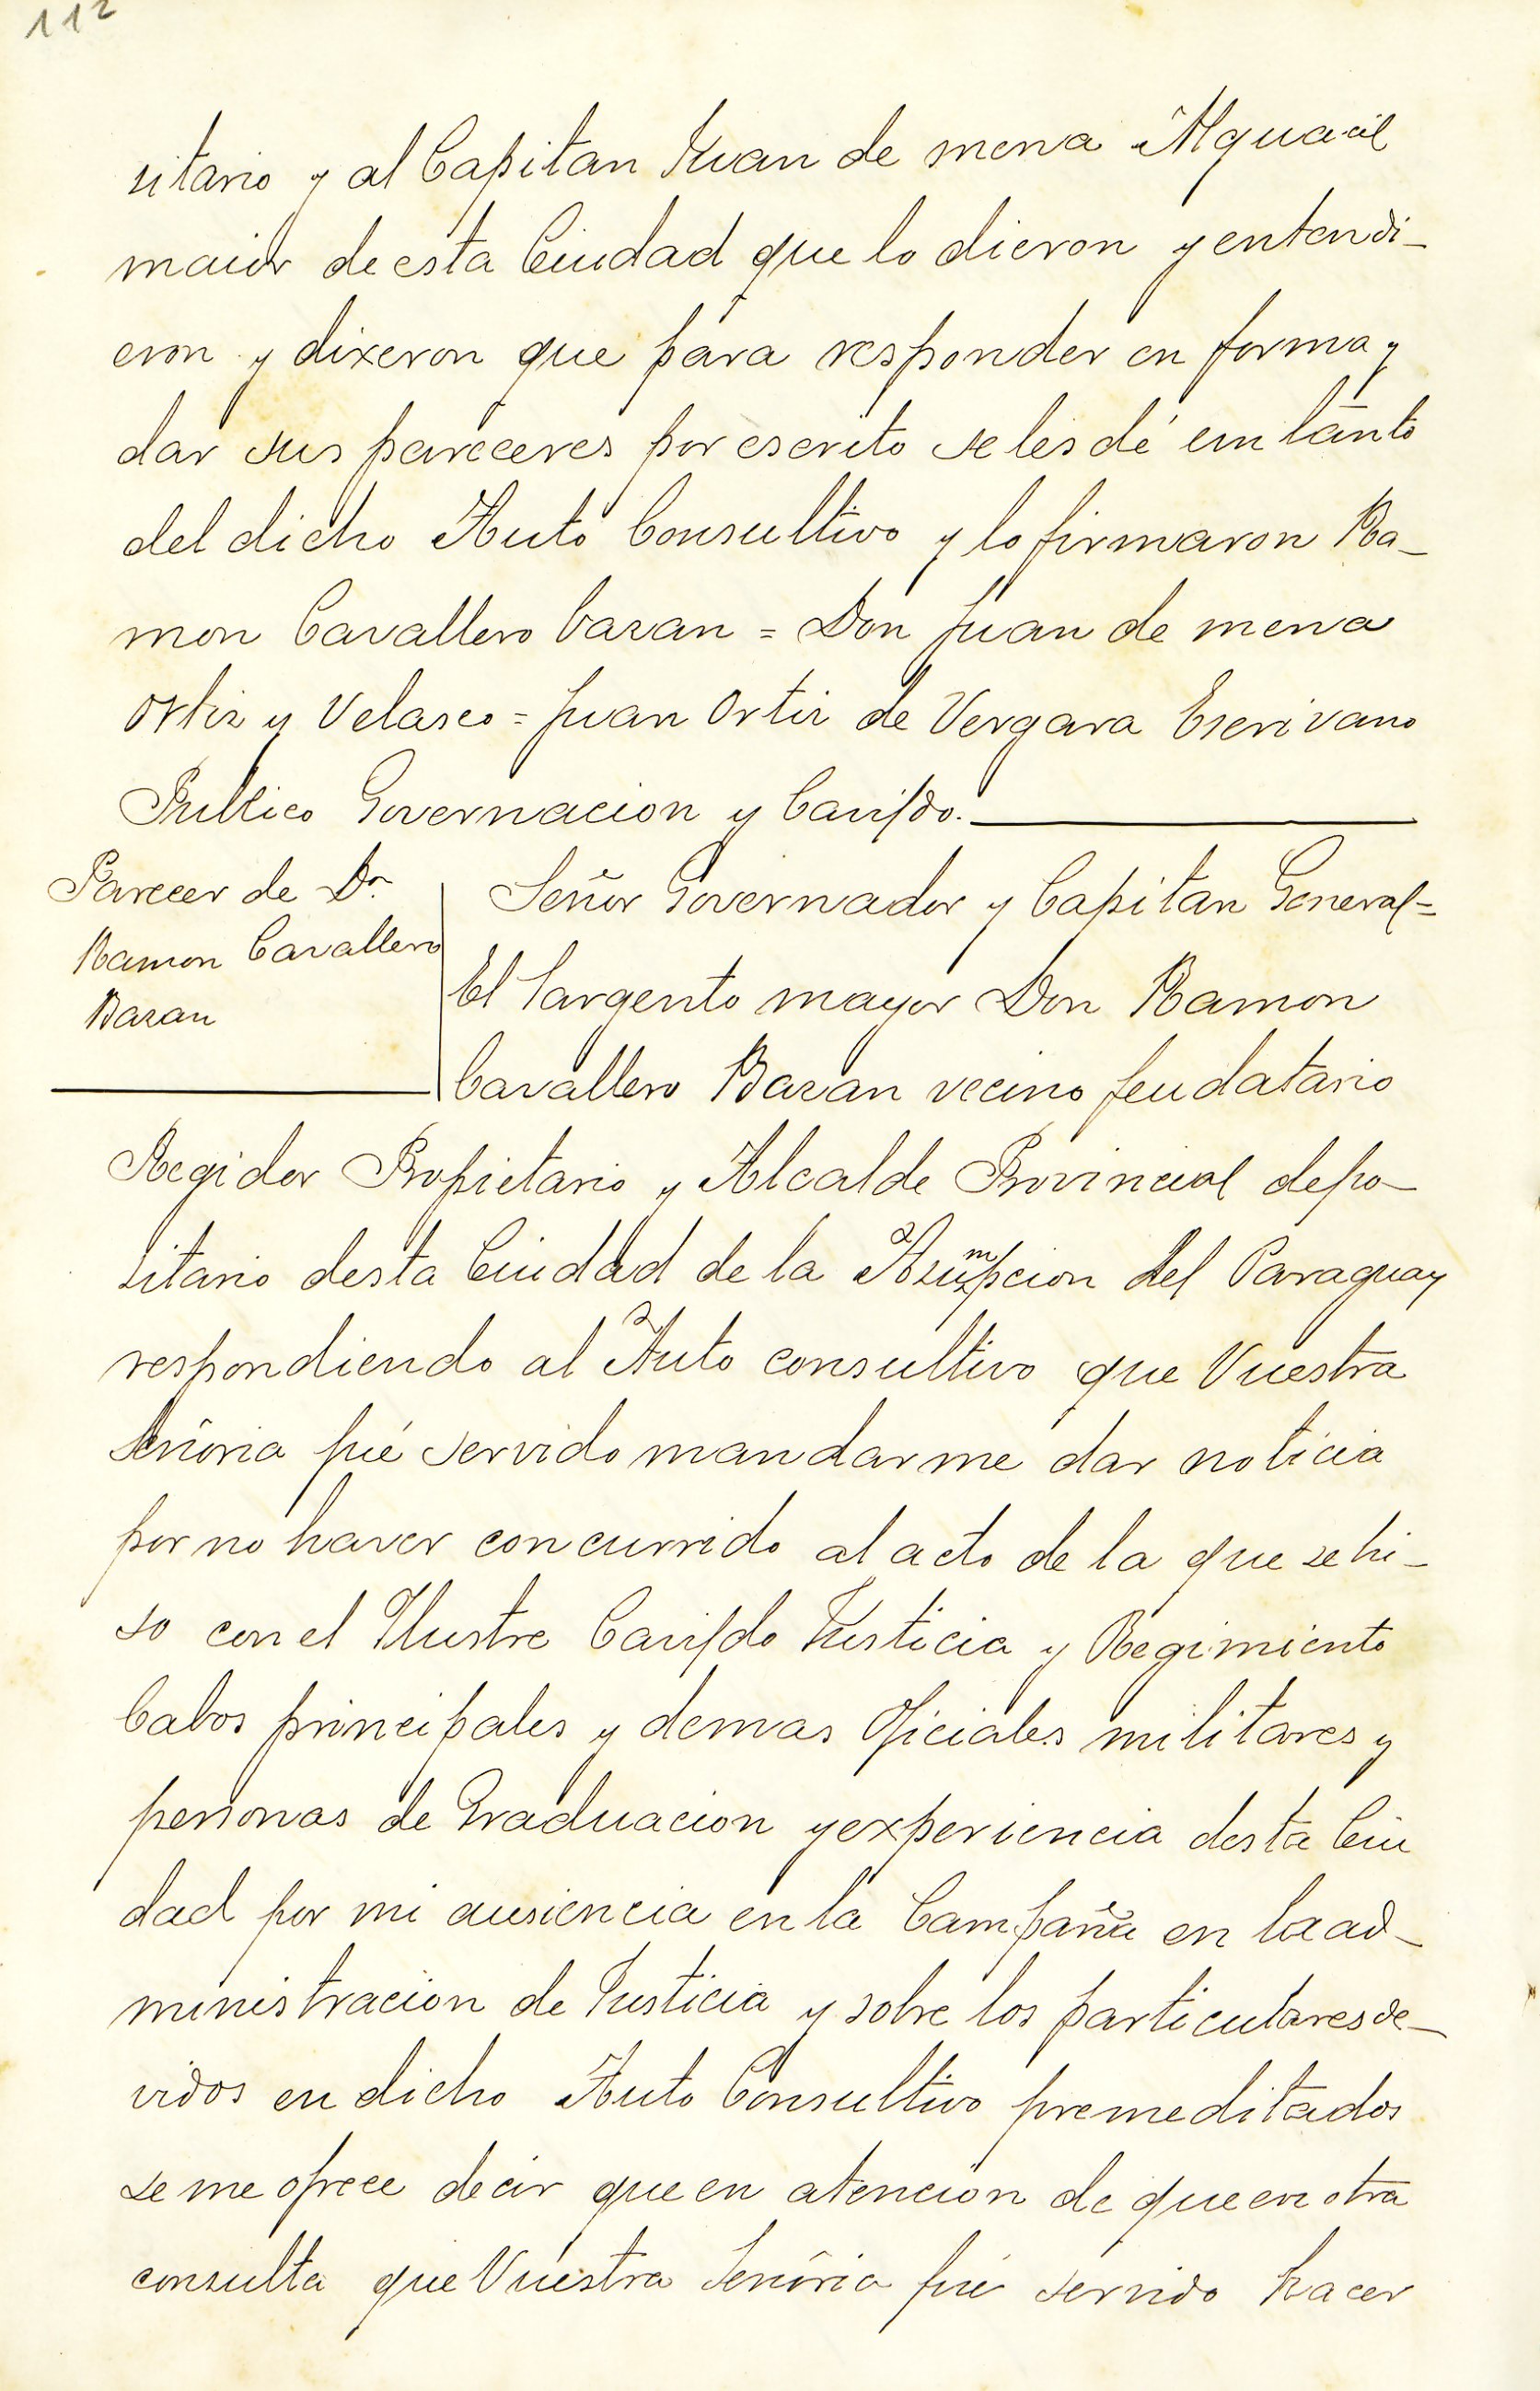 112
sitario y al Capitan Juan de mena Alguacil
maior de esta Ciudad que lo dieron y entendi-
eron y dixeron que para responder en forma y
dar sus pareceres por escrito se les dé un tanto
del dicho Auto Consultivo y lo firmaron Ra-
mon Cavallero Bazan = Don Juan de mena
Ortiz y Velasco = Juan Ortiz de Vergara Escrivano
Publico Governacion y Cavildo.
Parecer de Dn
Ramon Cavallero
Bazan
Señor Governador y Capitan General=
El Sargento mayor Don Ramon
Cavallero Bazan vecino feudatario
Regidor Propietario y Alcalde Provincial depo-
sitario desta Ciudad de la Asumpcion del Paraguay
respondiendo al Auto consultivo que Vuestra
Señoria fué servido mandarme dar noticia
por no haver concurrido al acto de la que se hi-
so con el Ilustre Cavildo Justicia y Regimiento
Cabos principales y demas Oficiales militares y
personas de Graduacion y experiencia desta Ciu
dad por mi ausiencia en la Campaña en la ad-
ministracion de Justicia y sobre los particulares de-
vidos en dicho Auto Consultivo premeditados
se me ofrece decir que en atencion de que en otra
consulta que Vuestra Señoria fué servido hacer